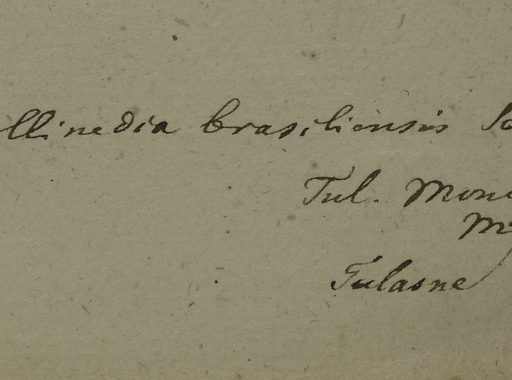 llinedia brasiliensis
Tul. Mon
Tulasne